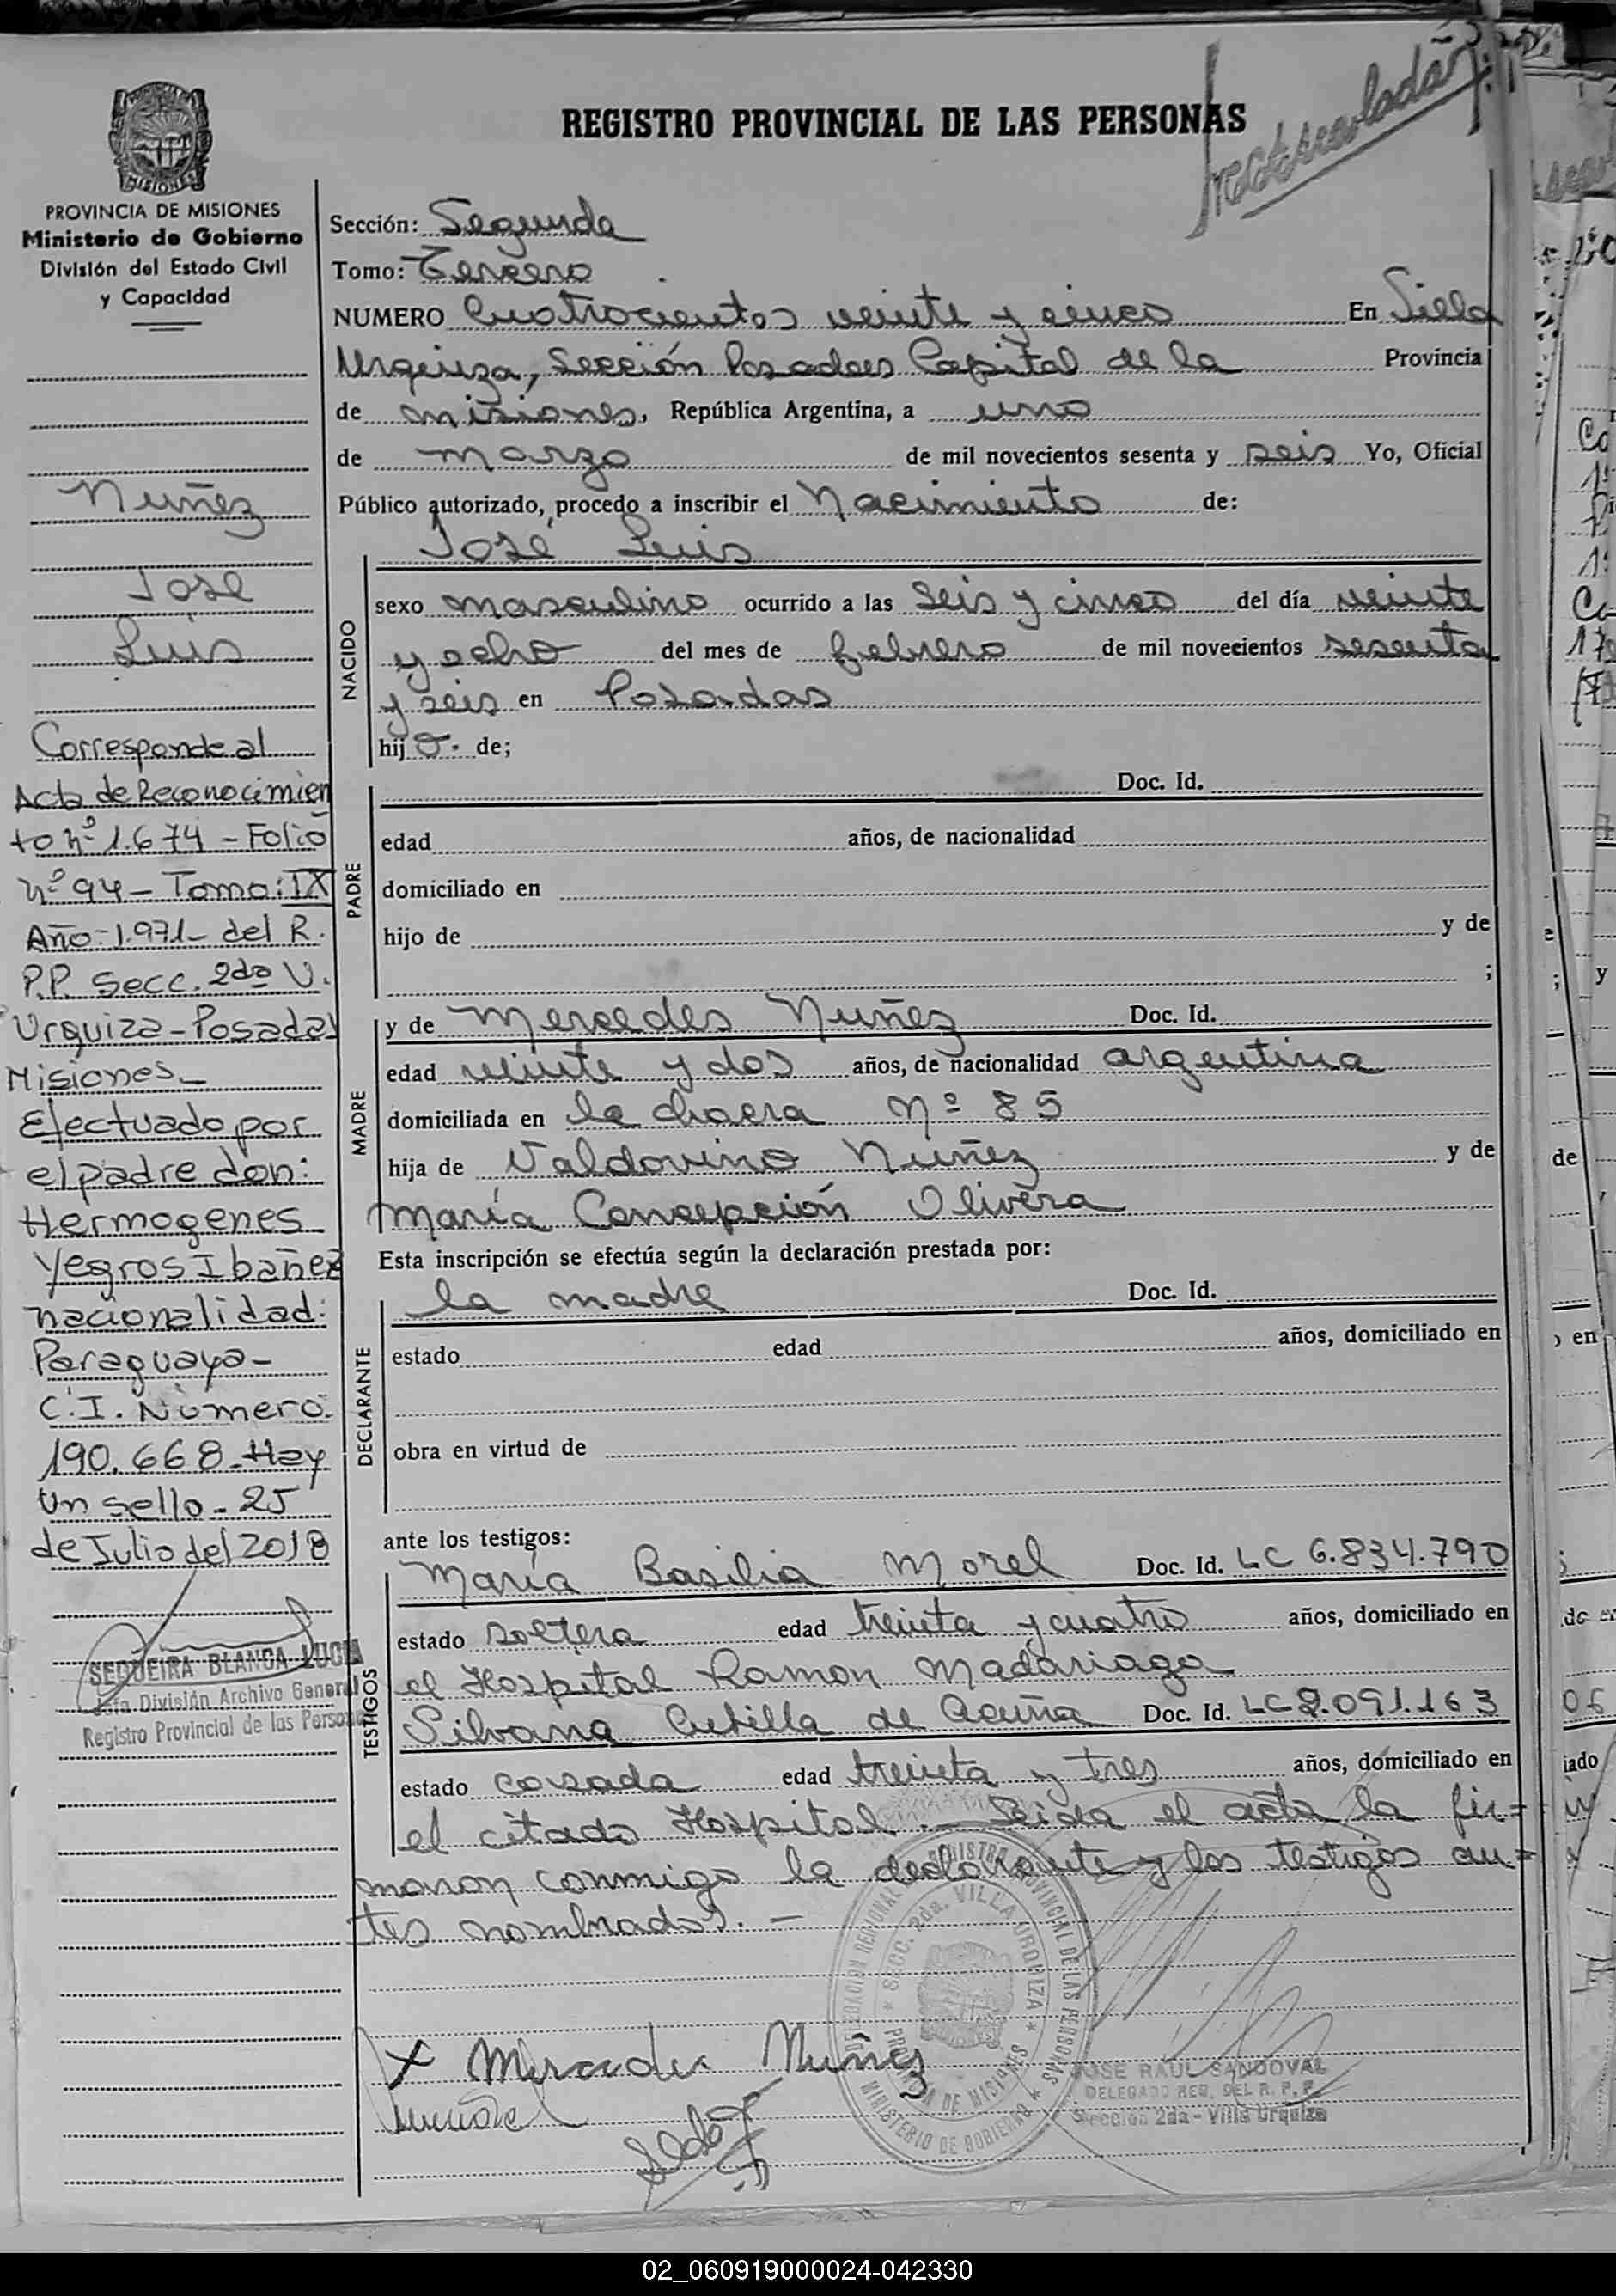 REGISTRO PROVINCIAL DE LAS PERSONAS
MISIONES
PROVINCIA DE MISIONES
Ministerio de Gobierno
División del Estado Civil
y Capacidad
Nuñez
Jose
Luis
Corresponde al
Acta de Reconocimien
to nº 1.674 - Folio
nº 94 - Tomo: IX
Año - 1.971 - del R.
P.P. Secc. 2da V.
Urquiza - Posadas
Misiones -
Efectuado por
el padre don:
Hermogenes
Yegros Ibañez
nacionalidad:
Paraguaya -
C.I. Número:
190.668 - Hay
un sello - 25
de Julio del 2018
SEQUEIRA BLANCA LUCIA
Jefa División Archivo General
Registro Provincial de las Persona
Sección: Segunda
Tomo: Tercero
NUMERO Cuatrocientos veinte y cinco En Villa
Urquiza, Sección Posadas Capital de la Provincia
de misiones, República Argentina, a uno
de marzo de mil novecientos sesenta y seis Yo, Oficial
Público autorizado, procedo a inscribir el Nacimiento de:
José Luis
NACIDO
sexo masculino ocurrido a las seis y cinco del día veinte
y ocho del mes de febrero de mil novecientos sesenta
y seis en Posadas
hij o. de;
PADRE
Doc. Id.
edad años, de nacionalidad
domiciliado en
hijo de y de
;
MADRE
y de Mercedes Nuñez Doc. Id.
edad veinte y dos años, de nacionalidad argentina
domiciliada en la chacra Nº 85
hija de Valdovino Nuñez y de
María Concepción Olivera
Esta inscripción se efectúa según la declaración prestada por:
DECLARANTE
la madre Doc. Id.
estado edad años, domiciliado en
obra en virtud de
ante los testigos:
TESTIGOS
María Basilia Morel Doc. Id. LC 6.834.790
estado soltera edad treinta y cuatro años, domiciliado en
el Hospital Ramon Madariaga
Silvana de Acuña Doc. Id. LC 2.091.163
estado casada edad treinta y tres años, domiciliado en
el citado Hospital. - Leida el acta la fir=
maron conmigo la declarante y los testigos an=
tes nombrados. -
DELEGACION REGIONAL REGISTRO PROVINCIAL DE LAS PERSONAS
SECC. 2da. VILLA URQUIZA
PROVINCIA DE MISIONES
MINISTERIO DE GOBIERNO
X Mercedes Nuñez
JOSE RAUL SANDOVAL
DELEGADO REG. DEL R. P. P.
Sección 2da - Villa Urquiza
02_060919000024-042330